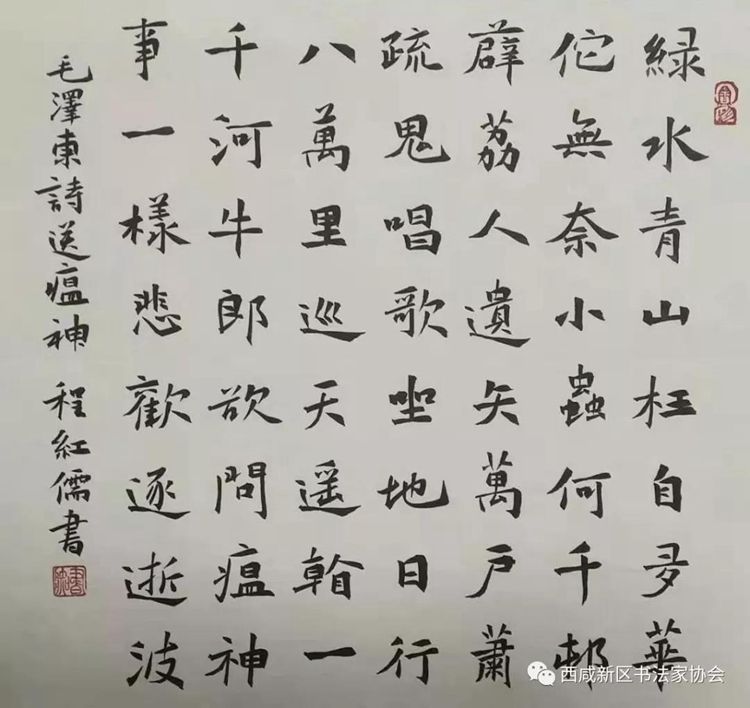 綠水青山枉自多華
佗無奈小蟲何千邨
薜荔人遺矢萬戶蕭
疏鬼唱歌坐地日行
八萬里巡天遥看一
千河牛郎欲問瘟神
事一樣悲歡逐逝波
毛澤東詩送瘟神 程紅儒書
西咸新区书法家协会